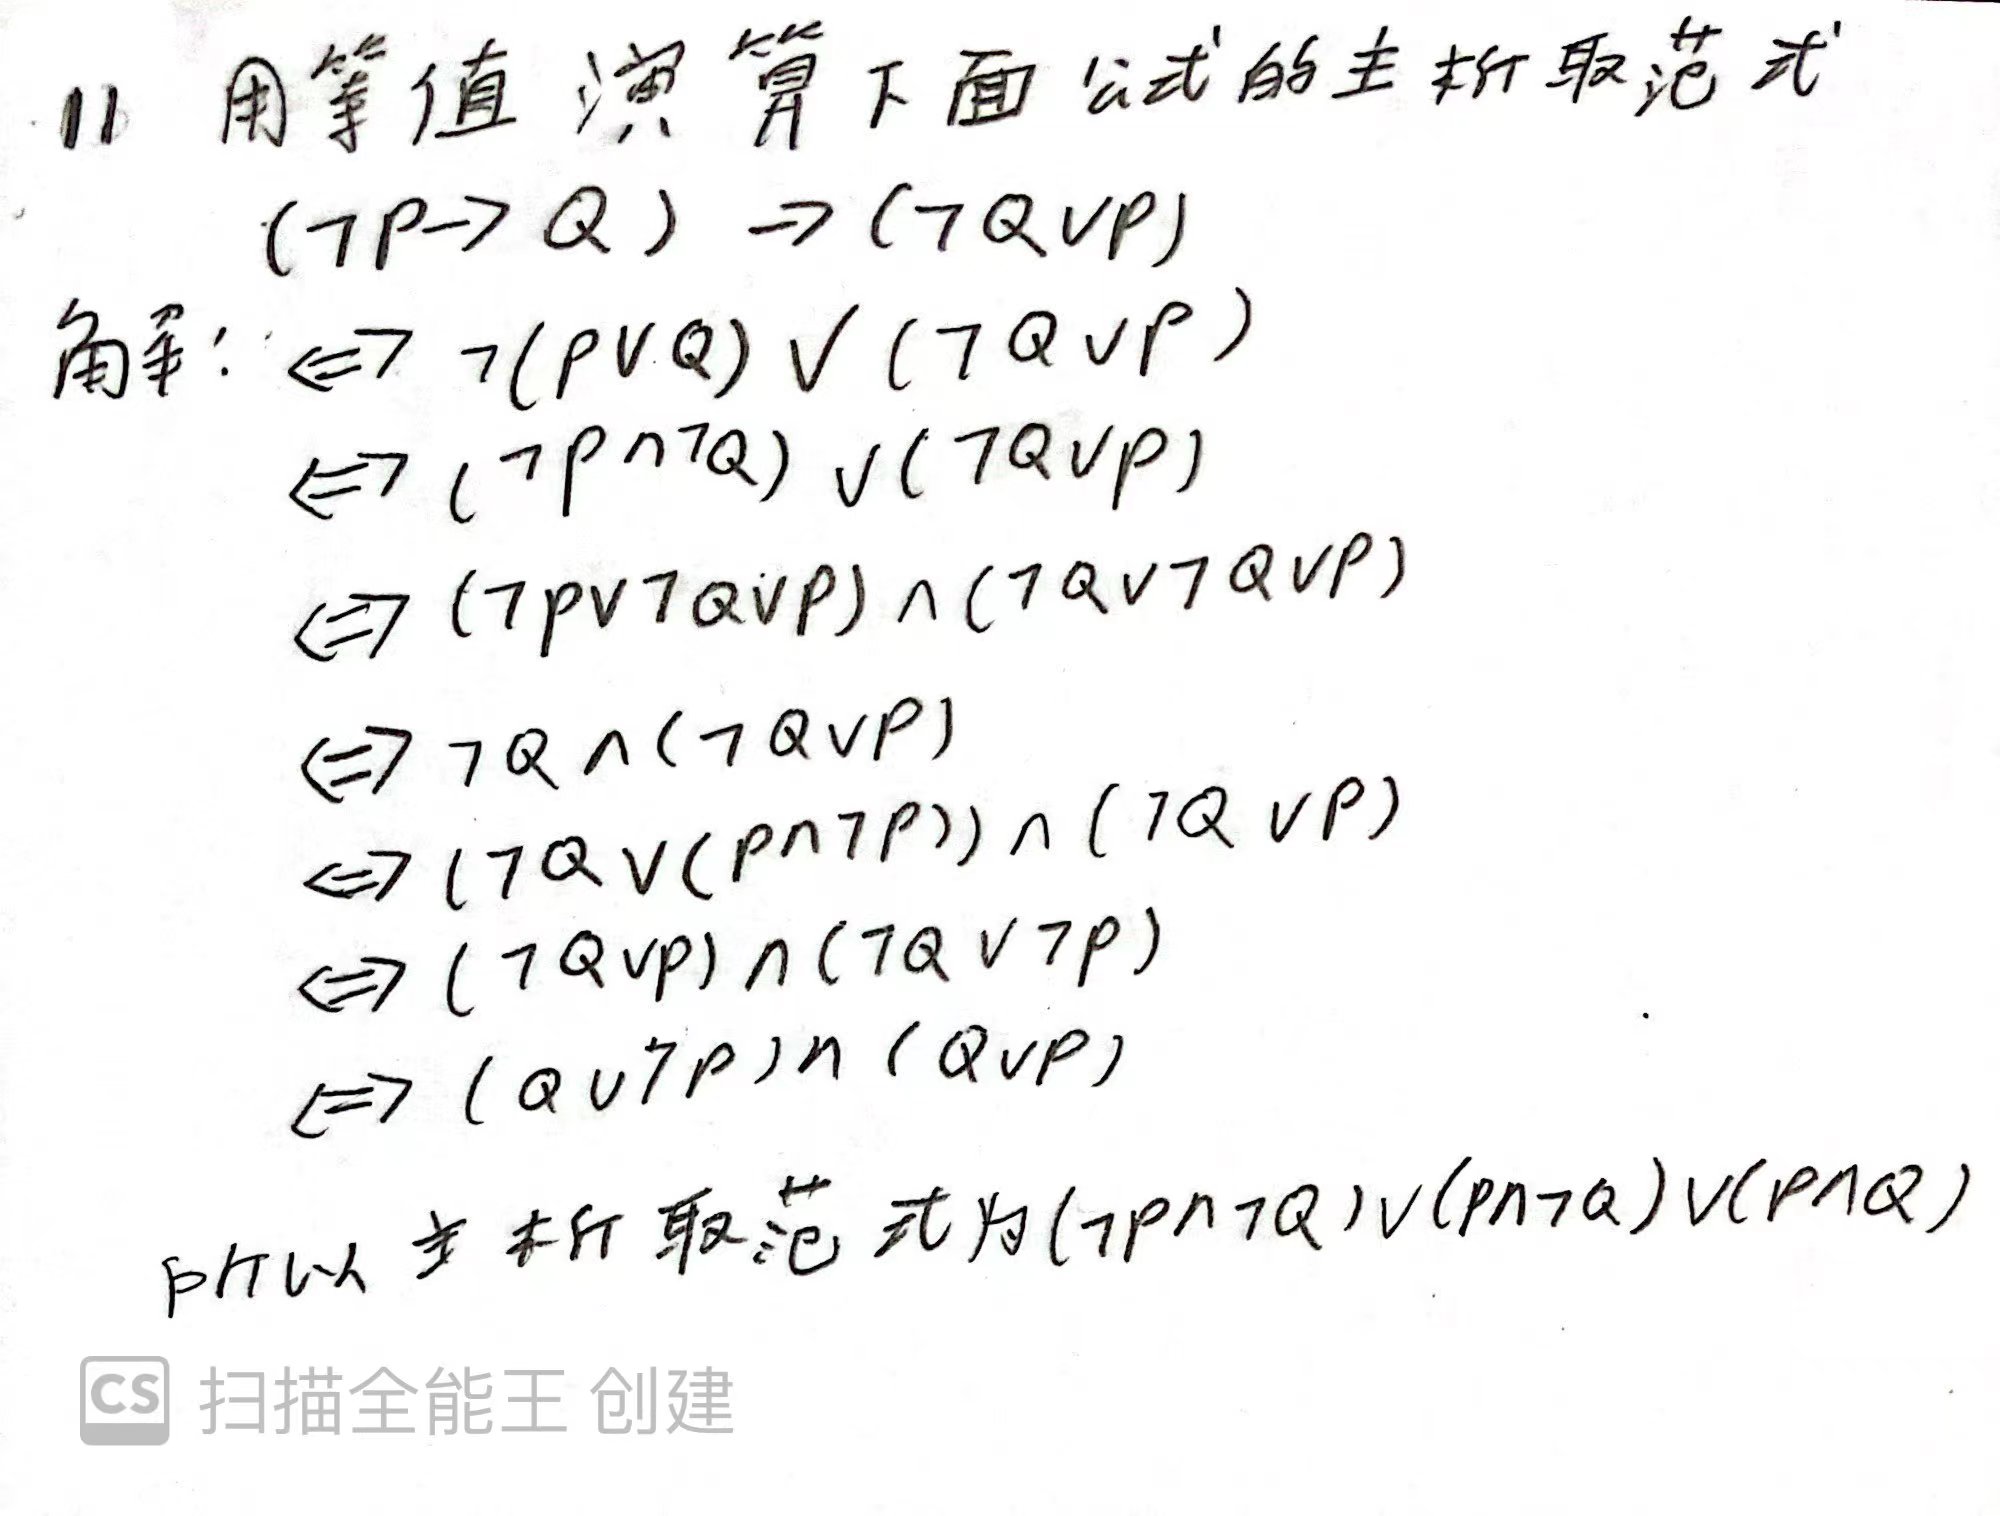 11 用等值演算下面公式的主析取范式
(¬P→Q)→(¬Q∨P)
解:⇔¬(P∨Q)∨(¬Q∨P)
⇔(¬P∧¬Q)∨(¬Q∨P)
⇔(¬P∨¬Q∨P)∧(¬Q∨¬Q∨P)
⇔¬Q∧(¬Q∨P)
⇔(¬Q∨(P∧¬P))∧(¬Q∨P)
⇔(¬Q∨P)∧(¬Q∨¬P)
⇔(Q∨¬P)∧(Q∨P)
所以主析取范式为(¬P∧¬Q)∨(P∧¬Q)∨(P∧Q)
CS 扫描全能王 创建